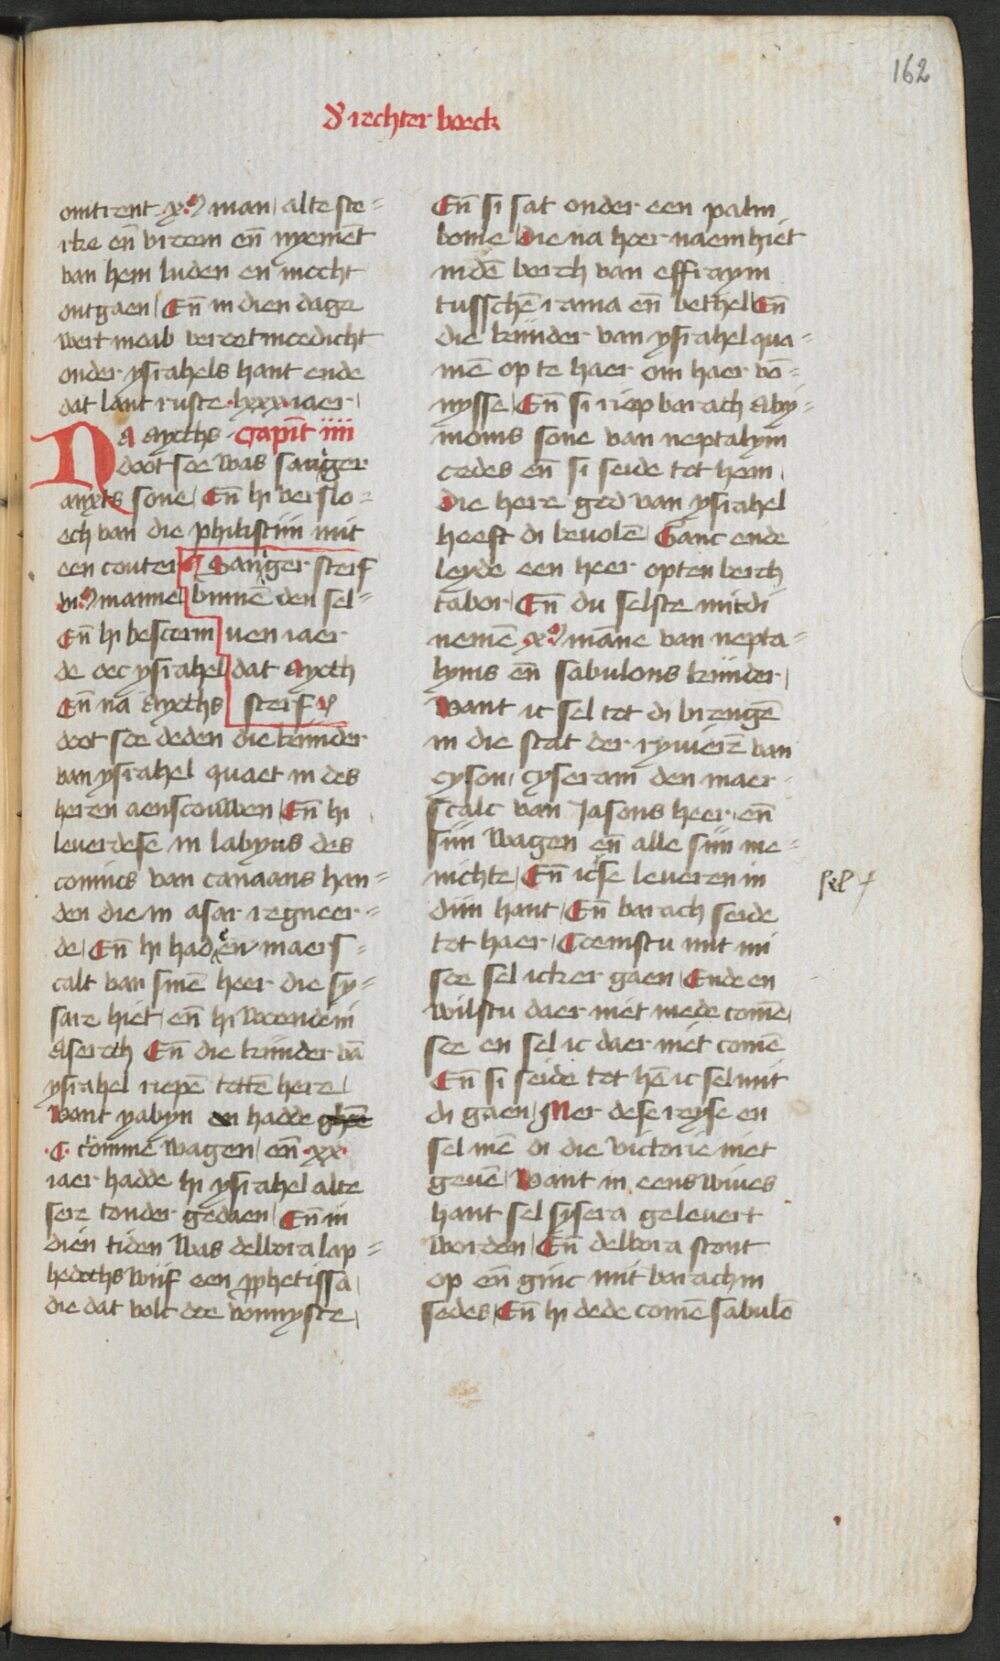 162
d' rechter boeck
omtrent .x.M man alte ste=
rke en̄ vroem en̄ nyemēt
van hem luden en mocht
ontgaen En̄ in dien dage
wert moab veroetmoedicht
onder ysrahels hant ende
dat lant ruste .lxxx. iaer
NA ayoths Capit̄ iiii
doot soe was sanger
anyts sone En̄ hi verslo=
ech van die philistiin mit
een couter ¶ Sanger sterf
vi.M manne binnē den sel=
En̄ hi bescerm uen iaer
de oec ysrahel dat Ayoth
En̄ na Ayoths sterf
doot soe deden die kinder
van ysrahel quaet in des
heren aenscouwen En̄ hi
leverdese in labyns des
conincs van canaans han=
den die in asar regneer=
de En̄ hi had enē maers=
calt van sinē heer die sy=
sare hiet en̄ hi woende in
Aseroth En̄ die kinder vā
ysrahel riepē tottē here
Want yabyn en hadde ghee
.C. comme wagen en̄ .xx.
iaer hadde hi ysrahel alte
sere tonder gedaen En̄ in
dien tiden was delbora lap=
hedochs wiif een prophetissa
die dat volc dee vonnyste
En̄ si sat onder een palm
bome die na hoer naem hiet
in dē berch van effraym
tusschē rama en̄ bethel En̄
die kiinder van ysrahel qua=
mē op te haer om haer vō=
nysse En̄ si riep barach Aby=
moms sone van neptalym
cedes en̄ si seide tot hem
Die here god van ysrahel
heeft di bevolē Ganc ende
leyde een heer opten berch
tabor En̄ du selste mit di
nemē .x.M māne van nepta=
lyms en̄ sabulons kiinder
Want ic sel tot di brengē
in die stat der ryvierē van
cyson cyseram den maer=
scalc van Jasons heer en̄
siin wagen en̄ alle siin me=
nichte En̄ ic se leveren in
sel
diin hant En̄ barach seide
tot haer Coemstu mit mi
soe sel icker gaen Ende en
wilstu daer niet mede comē
soe en sel ic daer niet comē
En̄ si seide tot hē ic sel mit
di gaen Mer dese reyse en
sel mē di die victorie niet
gevē Want in eens wives
hant sel sysera gelevert
worden En̄ delbora stont
op en̄ ginc mit barach in
sedes En̄ hi dede comē sabulō